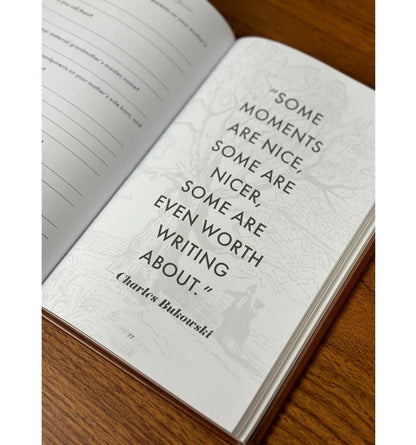 you call them?
r maternal grandmother's maiden name?
grandparents on your mother's side born, and
"SOME
MOMENTS
ARE NICE,
SOME ARE
NICER,
SOME ARE
EVEN WORTH
WRITING
ABOUT."
Charles Bukowski
77